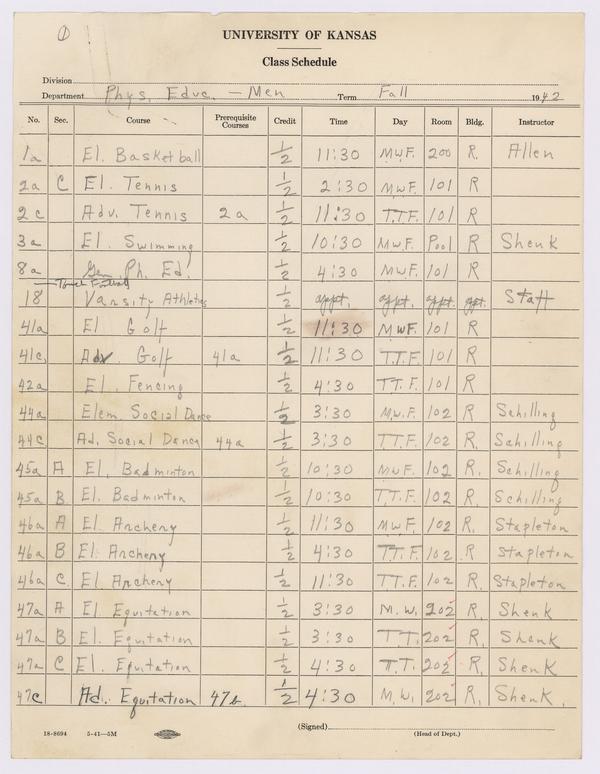 ①
UNIVERSITY OF KANSAS
Class Schedule
Division
Department Phys. Educ. — Men Term Fall 1942
No. Sec. Course Prerequisite Courses Credit Time Day Room Bldg. Instructor
1a El. Basketball ½ 11:30 M.W.F. 200 R. Allen
2a C El. Tennis ½ 2:30 M.W.F. 101 R
2c Adv. Tennis 2a ½ 11:30 T.T.F. 101 R
3a El. Swimming ½ 10:30 M.W.F. Pool R. Shenk
8a Gen. Ph. Ed. ½ 4:30 M.W.F. 101 R
Touch Football
18 Varsity Athletics ½ appt. appt. appt. appt. Staff
41a El Golf ½ 11:30 MWF. 101 R
41c Adv. Golf 41a ½ 11:30 T.T.F. 101 R
42a El. Fencing ½ 4:30 T.T.F. 101 R
44a Elem. Social Dance ½ 3:30 M.W.F. 102 R Schilling
44c Ad. Social Dance 44a ½ 3:30 T.T.F. 102 R. Schilling
45a A El. Badminton ½ 10:30 MWF. 102 R. Schilling
45a B El. Badminton ½ 10:30 T.T.F. 102 R. Schilling
46a A El. Archery ½ 11:30 MWF. 102 R. Stapleton
46a B El Archery ½ 4:30 T.T.F. 102 R. Stapleton
46a C El. Archery ½ 11:30 T.T.F. 102 R. Stapleton
47a A El. Equitation ½ 3:30 M.W. 202 R. Shenk
47a B El. Equitation ½ 3:30 T.T. 202 R. Shenk
47a C El. Equitation ½ 4:30 T.T. 202 R. Shenk
47c Ad. Equitation 47b ½ 4:30 M.W. 202 R. Shenk.
(Signed)
18-8694 5-41—5M (Head of Dept.)